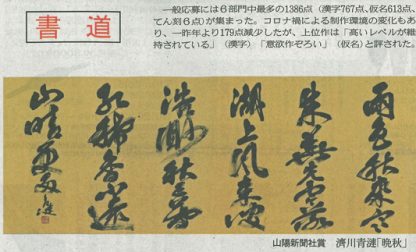 書道
一般応募には6部門中最多の1386点(漢字767点、仮名613点、
てん刻6点)が集まった。コロナ禍による制作環境の変化もあ
り、一昨年より179点減少したが、上位作は「高いレベルが維
持されている」(漢字)「意欲作ぞろい」(仮名)と評された。
雨色秋来
湖上風来波
浩渺秋
紅稀香少遠
山晴更
山陽新聞社賞 済川青漣「晩秋」